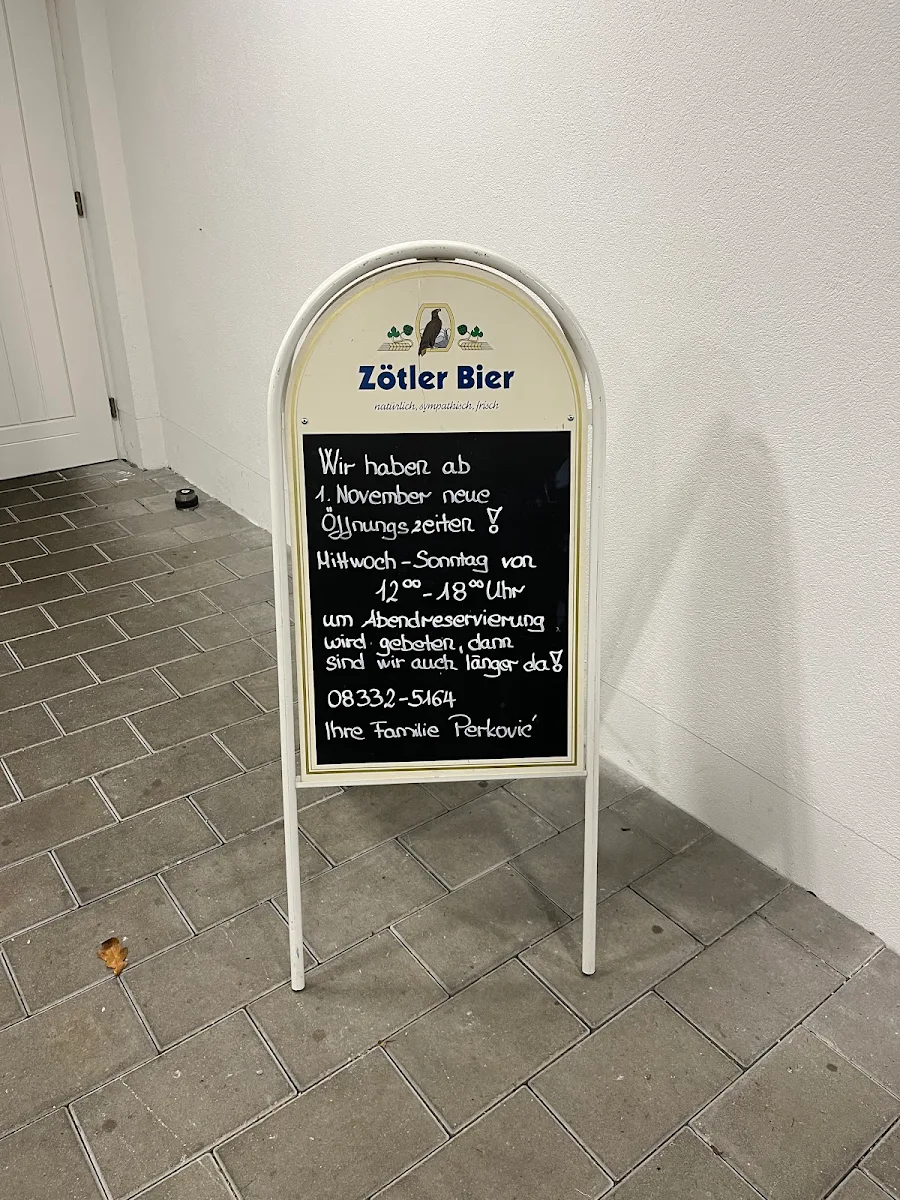 Zötler Bier
natürlich, sympathisch, frisch
Wir haben ab
1. November neue
Öffnungszeiten!
Mittwoch - Sonntag von
12⁰⁰ - 18⁰⁰ Uhr
um Abendreservierung
wird gebeten, dann
sind wir auch länger da!
08332-5164
Ihre Familie Perković